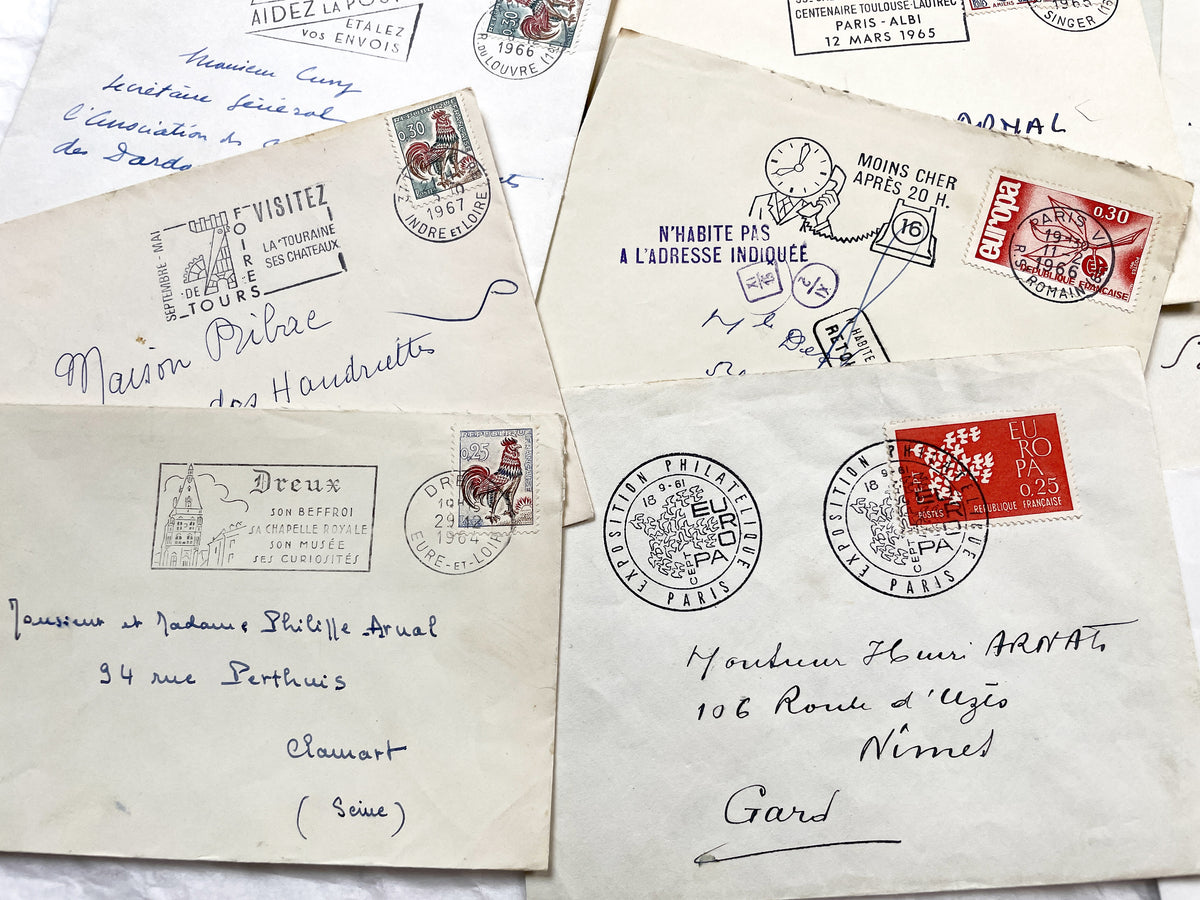 AIDEZ LA
ETALEZ
VOS ENVOIS
0.30
1966
R. DU LOUVRE (1
Monsieur Cuny
Secrétaire Général
l'Association des
des Dardo
CENTENAIRE TOULOUSE-LAUTREC
PARIS - ALBI
12 MARS 1965
1965
SINGER (16
ARNAL
SEPTEMBRE - MAI
FOIRES
DE
TOURS
VISITEZ
LA TOURAINE
SES CHATEAUX
0.30
1967
INDRE ET LOIRE
Maison Pibrac
des Haudriettes
MOINS CHER
APRÈS 20 H.
16
N'HABITE PAS
A L'ADRESSE INDIQUÉE
XI
15
XI
2
N'HABITE
RETO
M le De
europa
0.30
REPUBLIQUE FRANÇAISE
PARIS V
19
11-2
1966
R. ST ROMAIN
Dreux
SON BEFFROI
SA CHAPELLE ROYALE
SON MUSÉE
SES CURIOSITÉS
0,25
DRE
29
1964
EURE-ET-LOIR
Monsieur et Madame Philippe Arnal
94 rue Perthuis
Clamart
(Seine)
EXPOSITION PHILATELIQUE
18 9-61
EUROPA
CEPT
PARIS
EXPOSITION PHILATELIQUE
18 9-61
EUROPA
CEPT
PARIS
EUROPA
0,25
CEPT
POSTES
REPUBLIQUE FRANÇAISE
Monsieur Henri ARNAL
106 Route d'Uzès
Nîmes
Gard